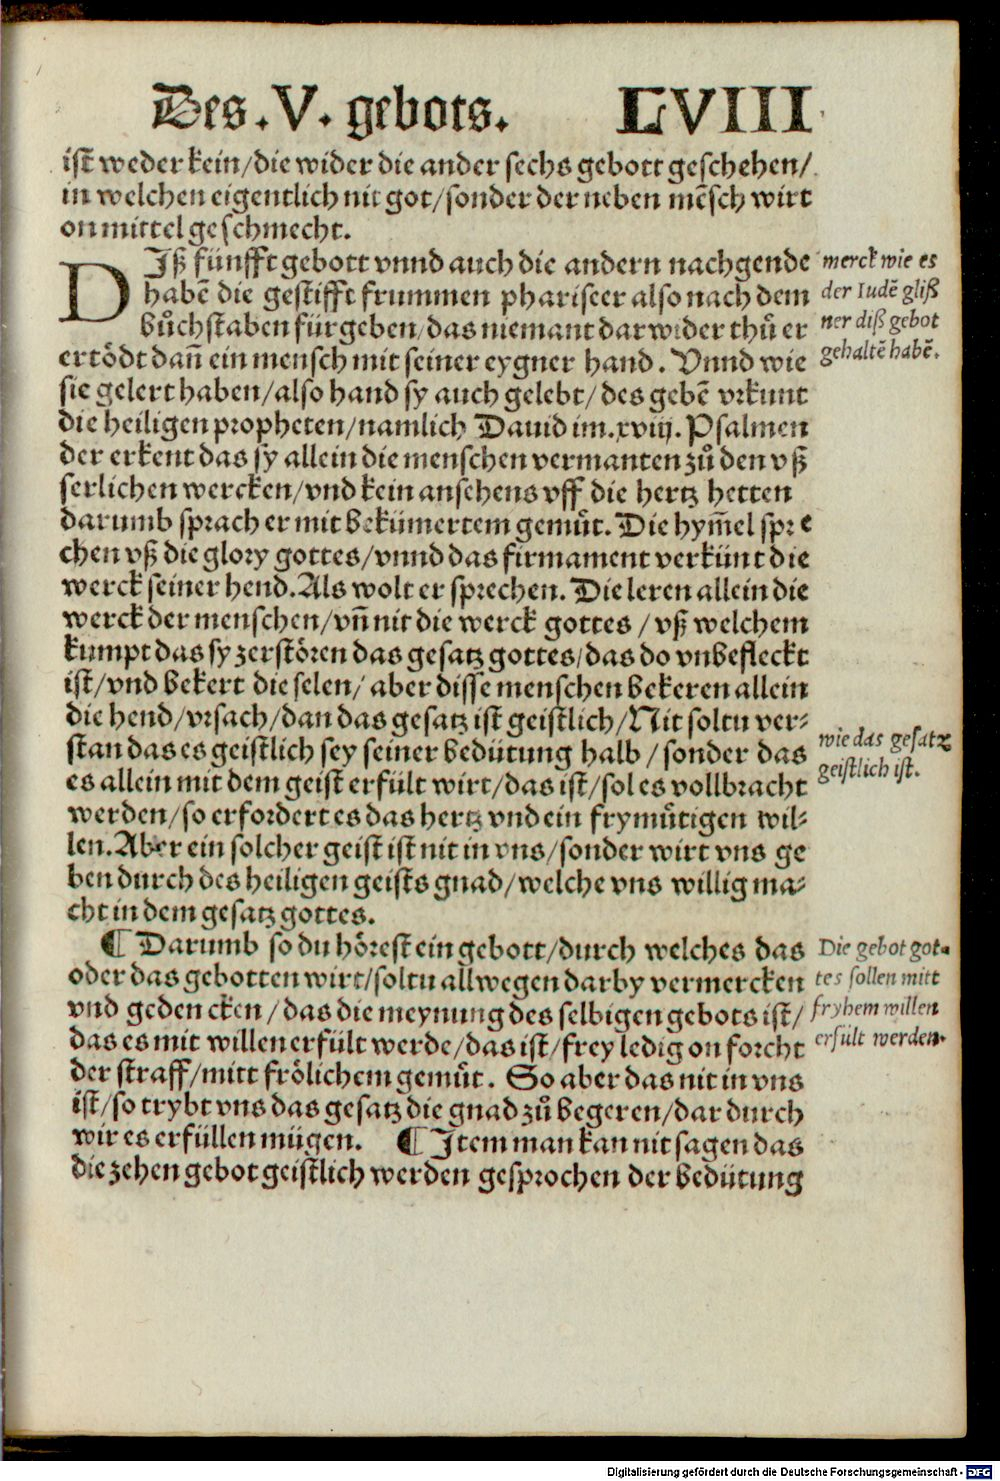 Des .V. gebots. LVIII
ist weder kein/die wider die ander sechs gebott geschehen/
in welchen eigentlich nit got/sonder der neben mēsch wirt
on mittel geschmecht.
DIß fünfft gebott vnnd auch die andern nachgende
habē die gestifft frummen phariseer also nach dem
bůchstaben fürgeben/das niemant dar wider thů er
ertödt dañ ein mensch mit seiner eygner hand. Vnnd wie
sie gelert haben/also hand sy auch gelebt/des gebē vrkunt
die heiligen propheten/namlich Dauid im.xviij.Psalmen
der erkent das sy allein die menschen vermanten zů den vß
serlichen wercken/vnd kein ansehens vff die hertz hetten
darumb sprach er mit bekümertem gemůt. Die hym̄el spre
chen vß die glory gottes/vnnd das firmament verkünt die
werck seiner hend. Als wolt er sprechen. Die leren allein die
werck der menschen/vñ nit die werck gottes/vß welchem
kumpt das sy zerstören das gesatz gottes/das do vnbefleckt
ist/vnd bekert die selen/aber disse menschen bekeren allein
die hend/vrsach/dan das gesatz ist geistlich/Nit soltu ver⸗
stan das es geistlich sey seiner bedütung halb/sonder das
es allein mit dem geist erfült wirt/das ist/sol es vollbracht
werden/so erfordert es das hertz vnd ein frymůtigen wil⸗
len. Aber ein solcher geist ist nit in vns/sonder wirt vns ge
ben durch des heiligen geists gnad/welche vns willig ma⸗
cht in dem gesatz gottes.
¶ Darumb so du hörest ein gebott/durch welches das
oder das gebotten wirt/soltu allwegen darby vermercken
vnd gedencken/das die meynung des selbigen gebots ist/
das es mit willen erfült werde/das ist/frey ledig on forcht
der straff/mitt frölichem gemůt. So aber das nit in vns
ist/so trybt vns das gesatz die gnad zů begeren/dar durch
wir es erfüllen mügen. ¶ Item man kan nit sagen das
die zehen gebot geistlich werden gesprochen der bedütung
merck wie es
der Iudē gliß
ner diß gebot
gehaltē habē.
wie das gesatz
geistlich ist.
Die gebot got⸗
tes sollen mitt
fryhem willen
erfült werden.
Digitalisierung gefördert durch die Deutsche Forschungsgemeinschaft - DFG